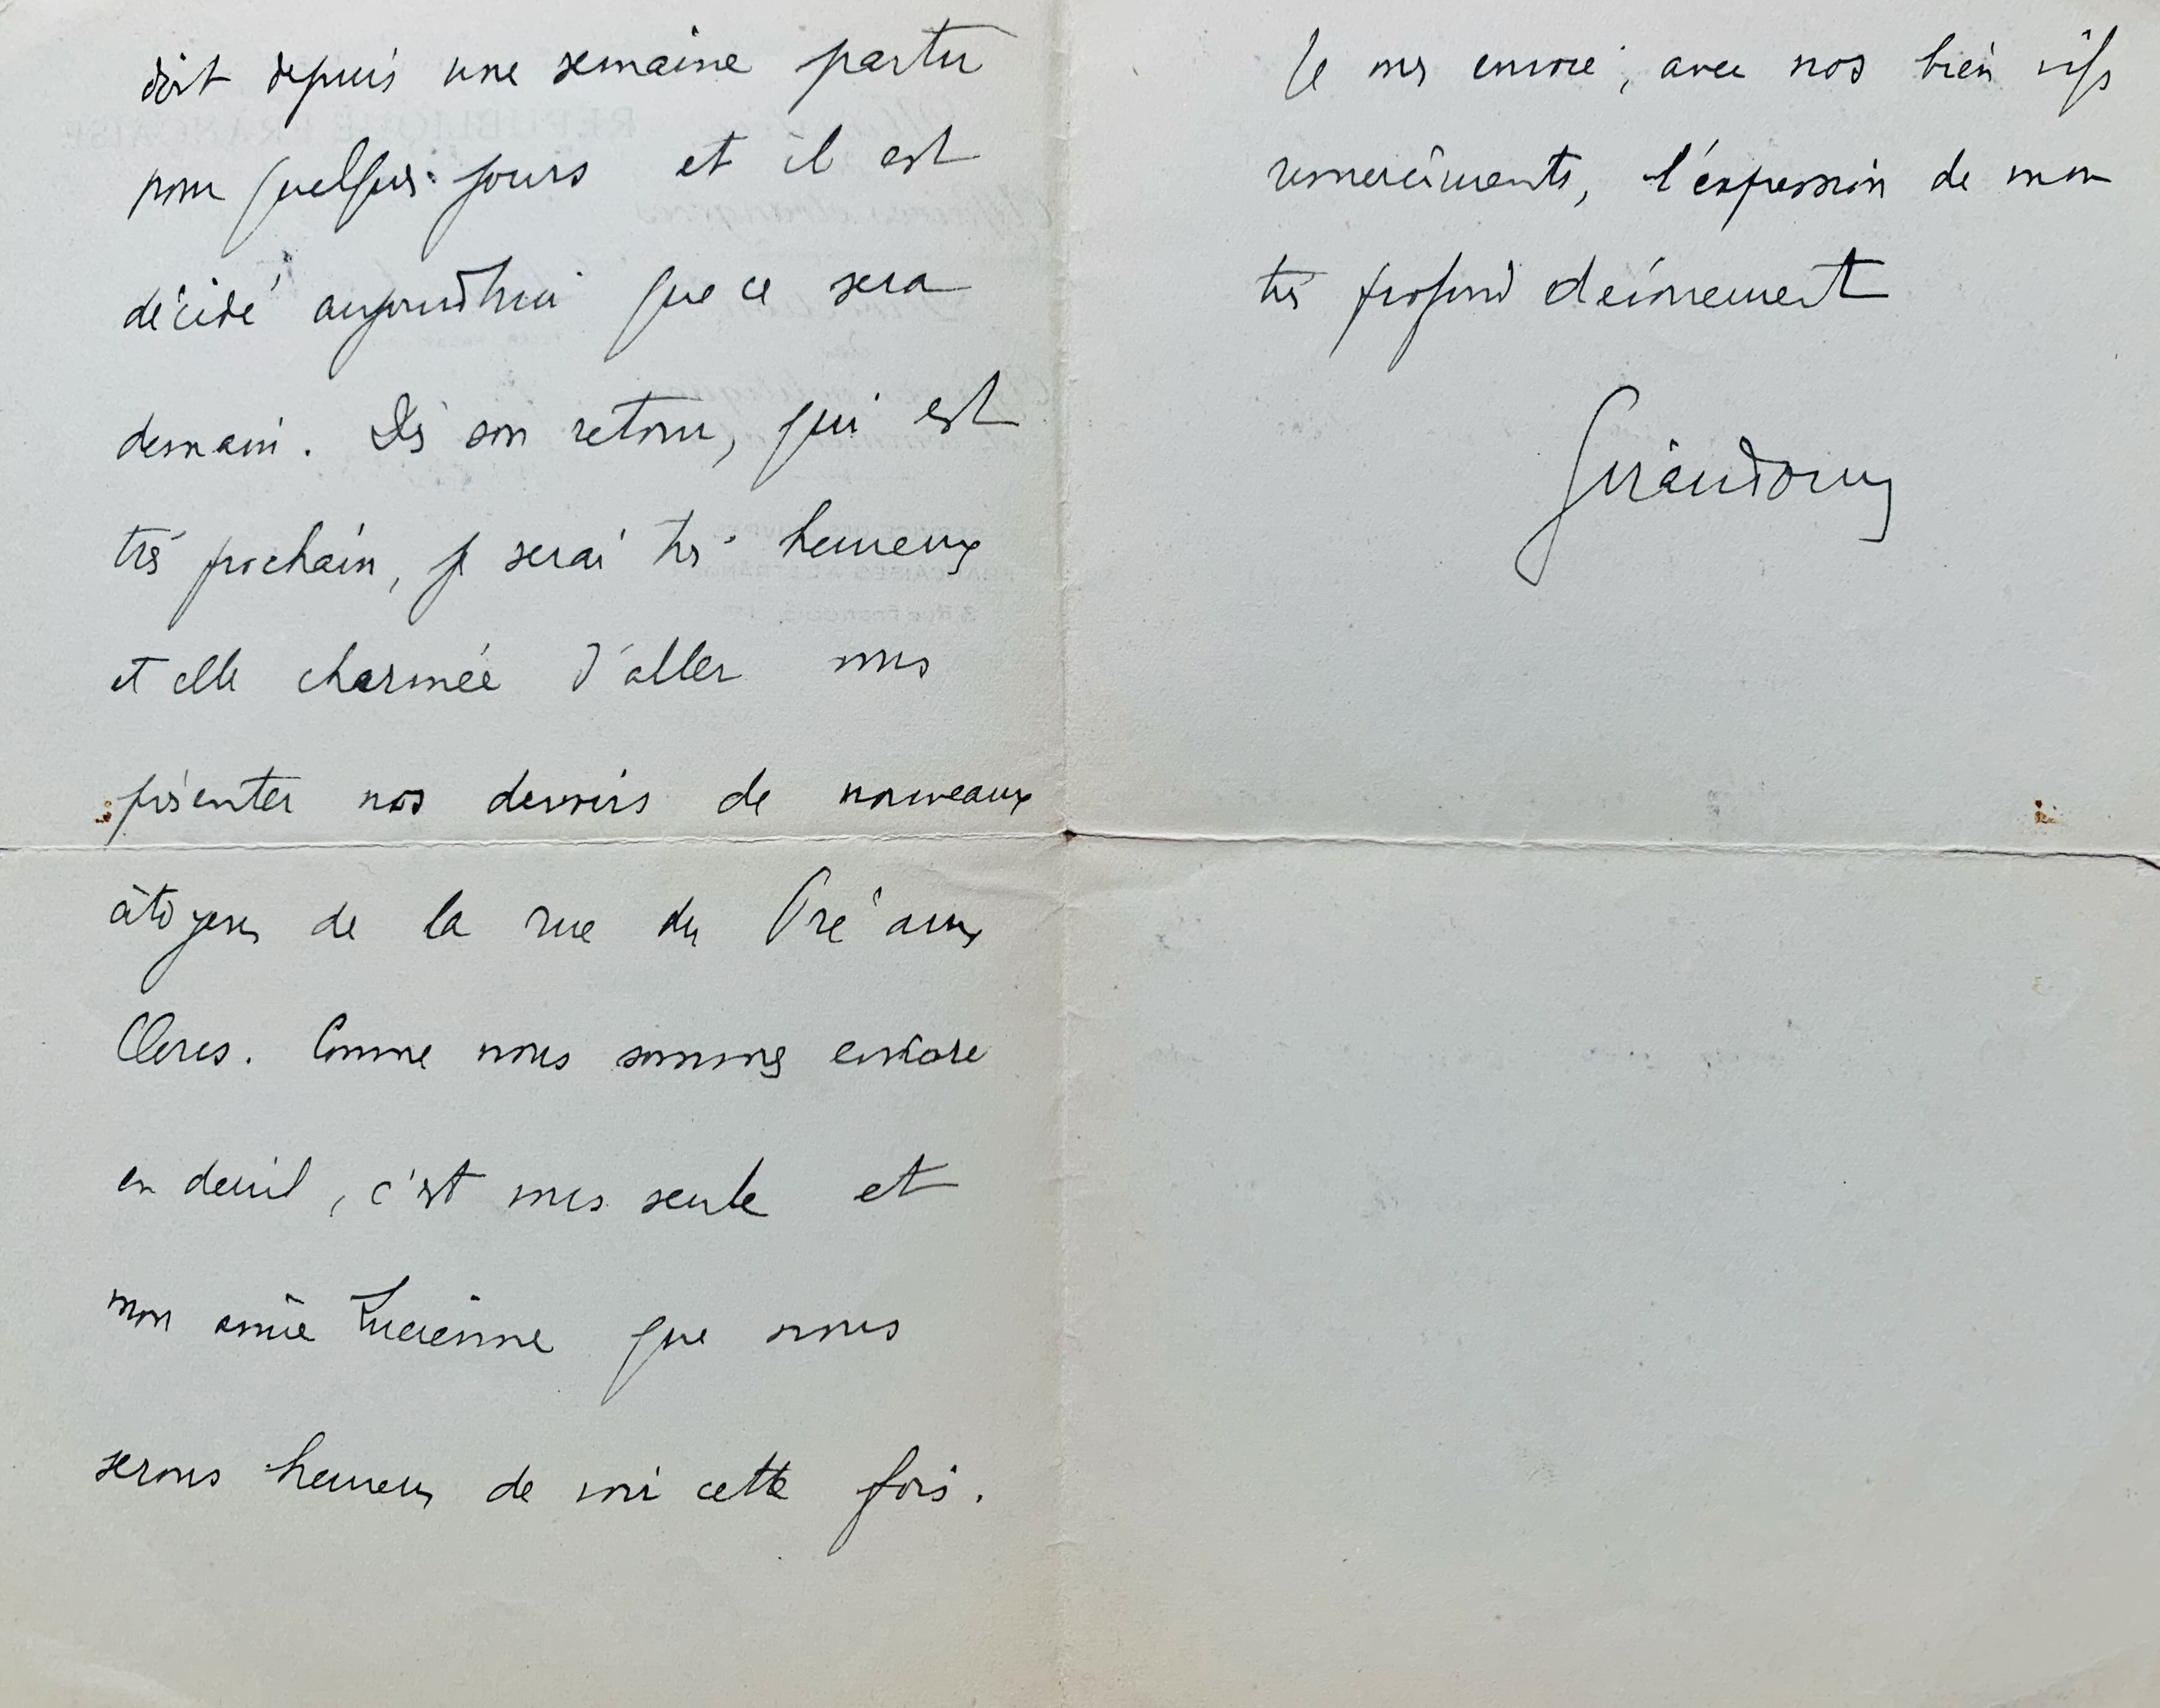 doit depuis une semaine partir
pour quelques jours et il est
décidé aujourd'hui que ce sera
demain. Dès son retour, qui est
très prochain, je serai très heureux
et elle charmée d'aller vous
présenter nos devoirs de nouveaux
citoyens de la rue du Pré aux
Clercs. Comme nous sommes encore
en deuil, c'est vous seule et
mon amie Lucienne que nous
serons heureux de voir cette fois.
Je vous envoie, avec nos bien vifs
remerciements, l'expression de mon
très profond dévouement
Giraudoux
RÉPUBLIQUE FRANÇAISE
SERVICE DES ŒUVRES
FRANÇAISES A L'ÉTRANGER
3 Rue François 1er